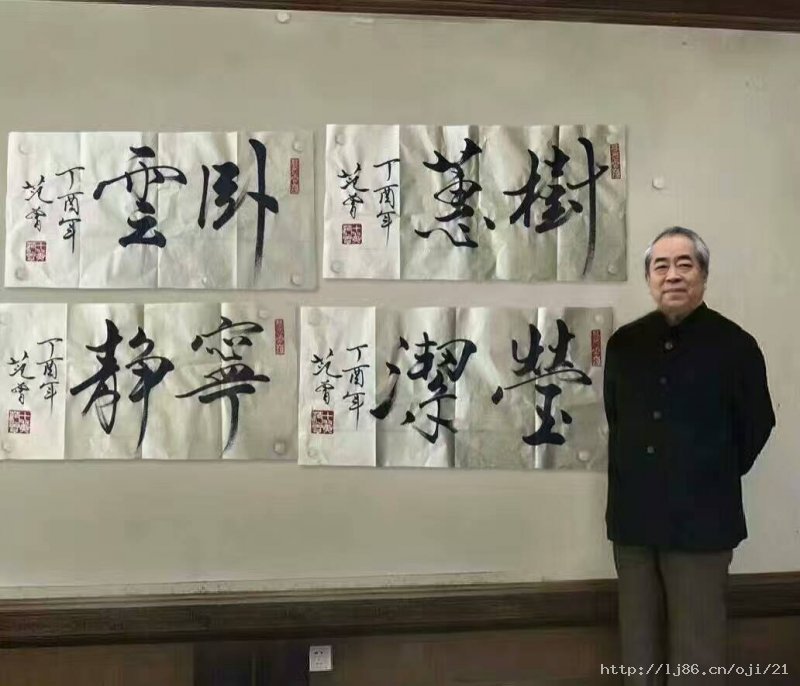 卧雲
丁酉年
范曾
樹蕙
丁酉年
范曾
寧静
丁酉年
范曾
瑩潔
丁酉年
范曾
http://lj86.cn/oji/21